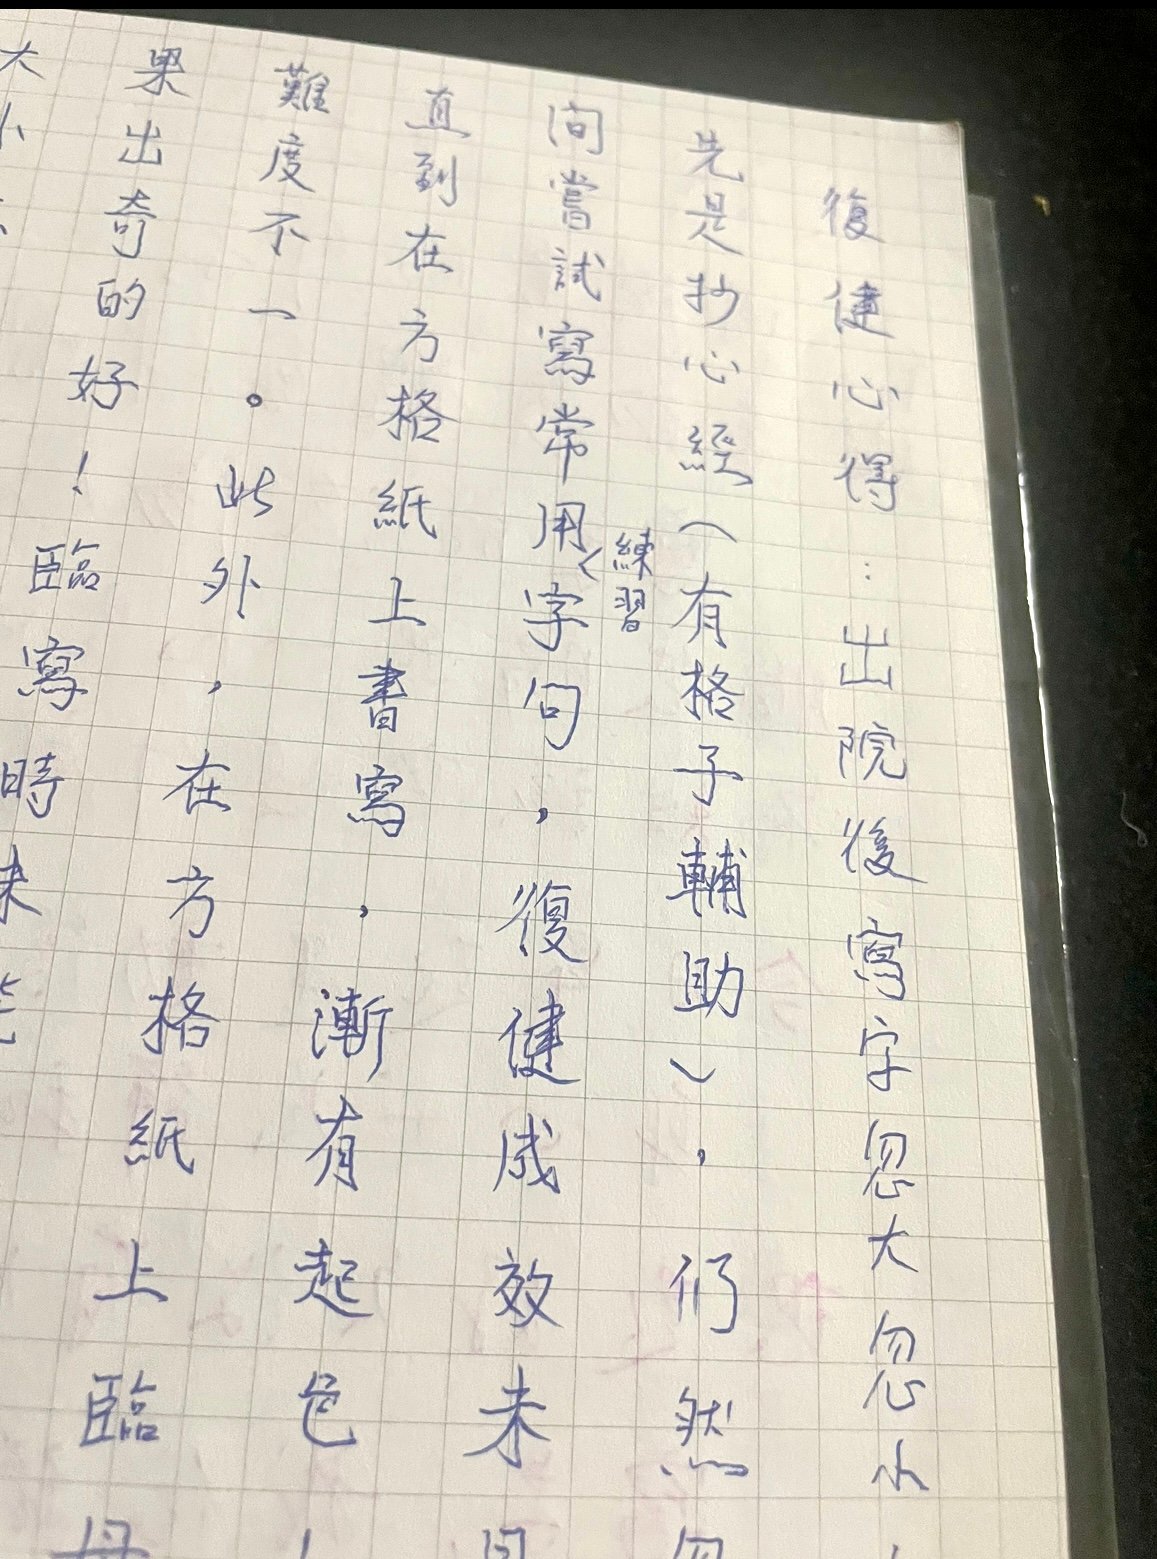 復健心得：出院後寫字忽大忽小，
先是抄心經（有格子輔助），仍然忽
間嘗試寫常用練習字句，復健成效未
直到在方格紙上書寫，漸有起色
難度不一。此外，在方格紙上臨
果出奇的好！臨寫時未
大小